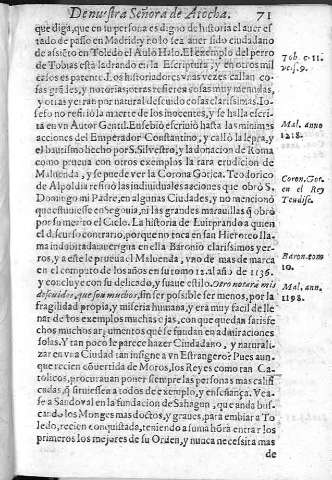 De nuestra Señora de Atocha. 71
que diga, que en su persona es digno de historia el auer es
tado de passo en Madrid, y no lo sea auer sido ciudadano
de assiento en Toledo el Aulo Halo. El exemplo del perro
de Tobias està ladrando en la Escriptura, y en otros mil
casos es patente. Los historiadores vnas vezes callan co
sas grādes, y notorias; otras refieren cosas muy menudas,
y otras yerran por natural descuido cosas clarissimas. Io-
sefo no refiriò la muerte de los inocentes, y se halla escri-
ta en vn Autor Gentil. Eusebio escriuiò hasta las minimas
acciones del Emperador Constantino, y callò la lepra, y
el bautismo hecho por S. Silvestro, y la donacion de Roma
como prueua con otros exemplos la rara erudicion de
Maluenda, y se puede ver la Corona Gotica. Teodorico
de Apoldia refiriò las indiuiduales acciones que obrò S.
Domingo mi Padre, en algunas Ciudades, y no mencionò
que estuuiesse en Segouia, ni las grandes marauillas q̃ obrò
por su merito el Cielo. La historia de Luitprando a quien
el discurso contrario, porque no toca en su Hieroteo lla-
ma indubitada auerigua en ella Baronio clarissimos yer-
ros, y a este le prueua el Maluenda, vno de mas de marca
en el computo de los años en su tomo 12. al año de 1136.
y concluye con su delicado, y suaue estilo. Otro notarà mis
descuidos, que son muchos, sin ser possible ser menos, por la
fragilidad propia, y miseria humana, y era muy facil de lle
nar de los exemplos muchas ojas, con que quedan satisfe
chos muchos argumentos què se fundan en admiraciones
solas. Y tan poco le parece hazer Ciudadano, y naturali-
zar en vna Ciudad tan insigne a vn Estrangero? Pues aun-
que recien cōuertida de Moros, los Reyes como tan Ca-
tolicos, procurauan poner siempre las personas mas califi
cadas, q̃ siruiessen a todos de exemplo, y enseñança. Vea-
se a Sandoval en la fundacion de Sahagun, que anda bus-
cando los Monges mas doctos, y graues, para embiar a To
ledo, recien conquistada, teniendo a suma hōra entrar los
primeros los mejores de su Orden, y nunca necessita mas
de
Tob. c. 11.
vers. 9.
Mal. anno
1218.
Coron. Got.
en el Rey
Teudisc.
Baron. tom
10.
Mal. anno.
1198.